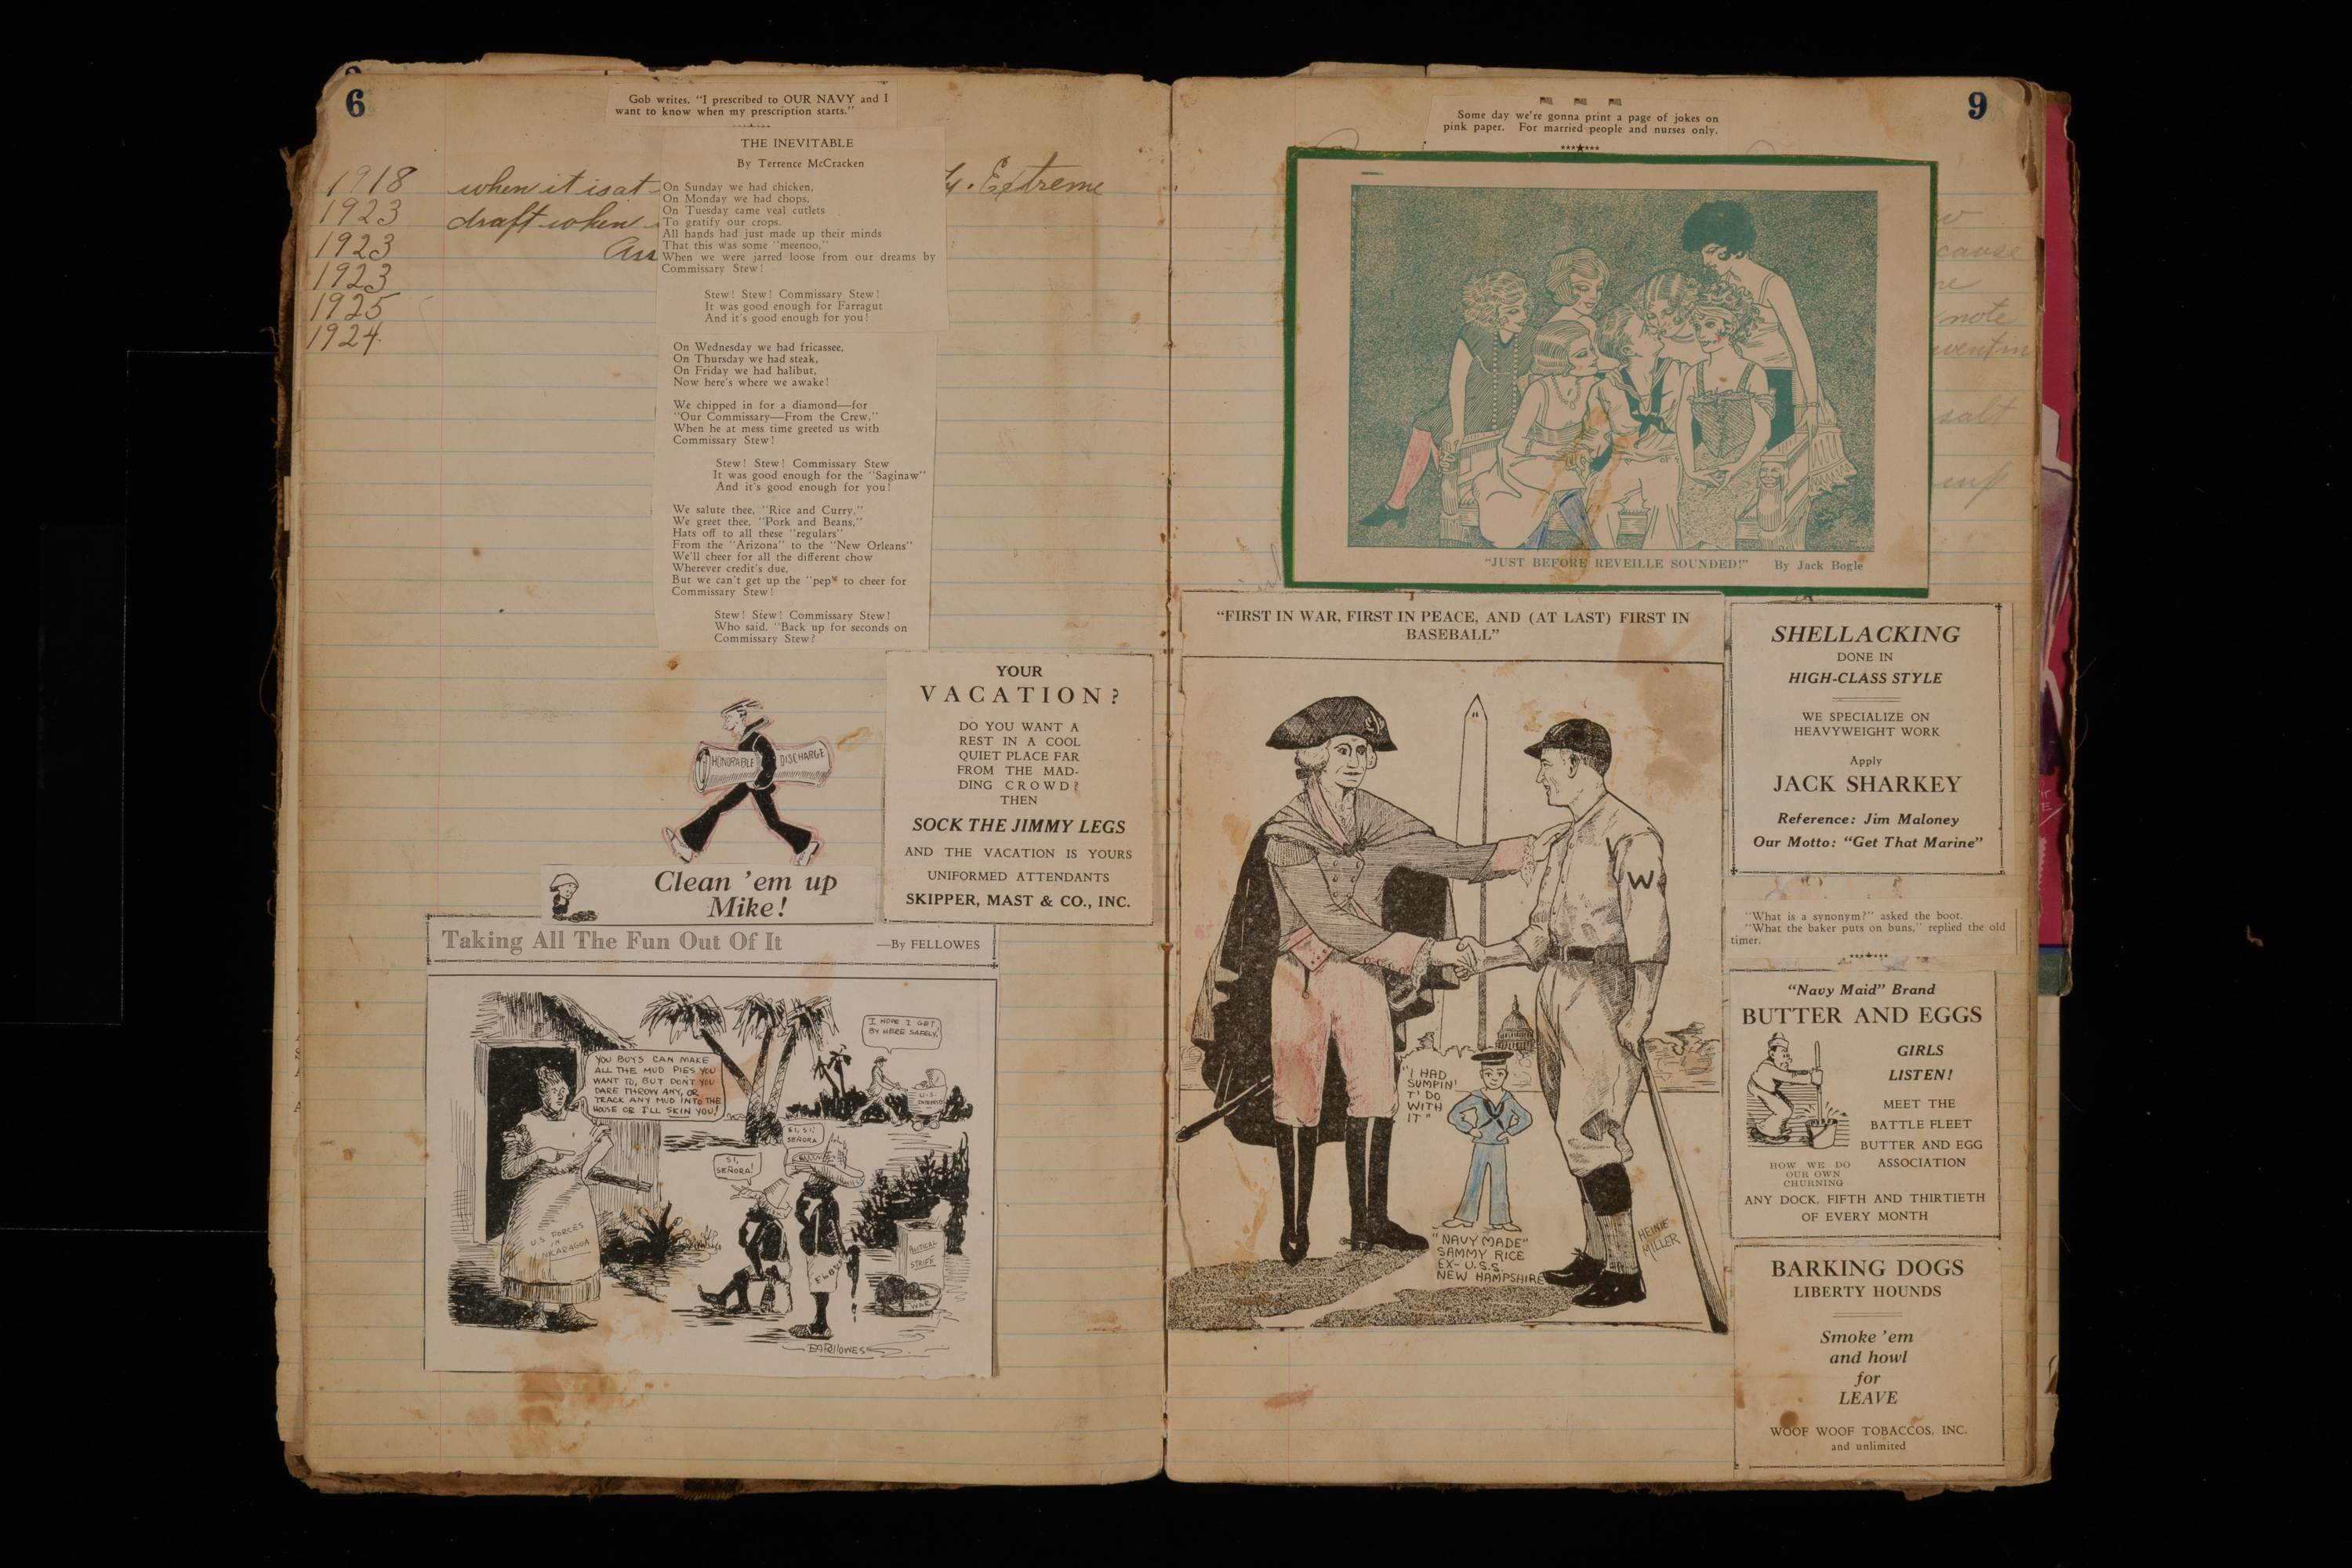 6
Gob writes, "I prescribed to OUR NAVY and I
want to know when my prescription starts."
1918 when it is at Extreme
1923 draft when
1923
1923
1925
1924
THE INEVITABLE
By Terrence McCracken
On Sunday we had chicken,
On Monday we had chops,
On Tuesday came veal cutlets
To gratify our crops.
All hands had just made up their minds
That this was some "meenoo,"
When we were jarred loose from our dreams by
Commissary Stew!
Stew! Stew! Commissary Stew!
It was good enough for Farragut
And it's good enough for you!
On Wednesday we had fricassee,
On Thursday we had steak,
On Friday we had halibut,
Now here's where we awake!
We chipped in for a diamond—for
"Our Commissary—From the Crew,"
When he at mess time greeted us with
Commissary Stew!
Stew! Stew! Commissary Stew
It was good enough for the "Saginaw"
And it's good enough for you!
We salute thee, "Rice and Curry,"
We greet thee, "Pork and Beans,"
Hats off to all these "regulars"
From the "Arizona" to the "New Orleans"
We'll cheer for all the different chow
Wherever credit's due,
But we can't get up the "pep" to cheer for
Commissary Stew!
Stew! Stew! Commissary Stew!
Who said, "Back up for seconds on
Commissary Stew?
HONORABLE DISCHARGE
Clean 'em up
Mike!
YOUR
VACATION?
DO YOU WANT A
REST IN A COOL
QUIET PLACE FAR
FROM THE MAD-
DING CROWD?
THEN
SOCK THE JIMMY LEGS
AND THE VACATION IS YOURS
UNIFORMED ATTENDANTS
SKIPPER, MAST & CO., INC.
Taking All The Fun Out Of It —By FELLOWES
I HOPE I GET
BY HERE SAFELY!
YOU BUYS CAN MAKE
ALL THE MUD PIES YOU
WANT TO, BUT DON'T YOU
DARE THROW ANY, OR
TRACK ANY MUD INTO THE
HOUSE OR I'LL SKIN YOU!
U.S.
INTERESTS
SI, SI,
SEÑORA
SI,
SEÑORA!
U.S. FORCES
IN
NICARAGUA
POLITICAL
STRIFE
WAR
FELLOWES
9
Some day we're gonna print a page of jokes on
pink paper. For married people and nurses only.
cause
note
went in
salt
"JUST BEFORE REVEILLE SOUNDED!" By Jack Bogle
"FIRST IN WAR, FIRST IN PEACE, AND (AT LAST) FIRST IN
BASEBALL"
W
"I HAD
SUMPIN'
T' DO
WITH
IT"
"NAVY MADE"
SAMMY RICE
EX-U.S.S.
NEW HAMPSHIRE
HEINIE
MILLER
SHELLACKING
DONE IN
HIGH-CLASS STYLE
WE SPECIALIZE ON
HEAVYWEIGHT WORK
Apply
JACK SHARKEY
Reference: Jim Maloney
Our Motto: "Get That Marine"
"What is a synonym?" asked the boot.
"What the baker puts on buns," replied the old
timer.
"Navy Maid" Brand
BUTTER AND EGGS
GIRLS
LISTEN!
MEET THE
BATTLE FLEET
BUTTER AND EGG
ASSOCIATION
HOW WE DO
OUR OWN
CHURNING
ANY DOCK, FIFTH AND THIRTIETH
OF EVERY MONTH
BARKING DOGS
LIBERTY HOUNDS
Smoke 'em
and howl
for
LEAVE
WOOF WOOF TOBACCOS, INC.
and unlimited